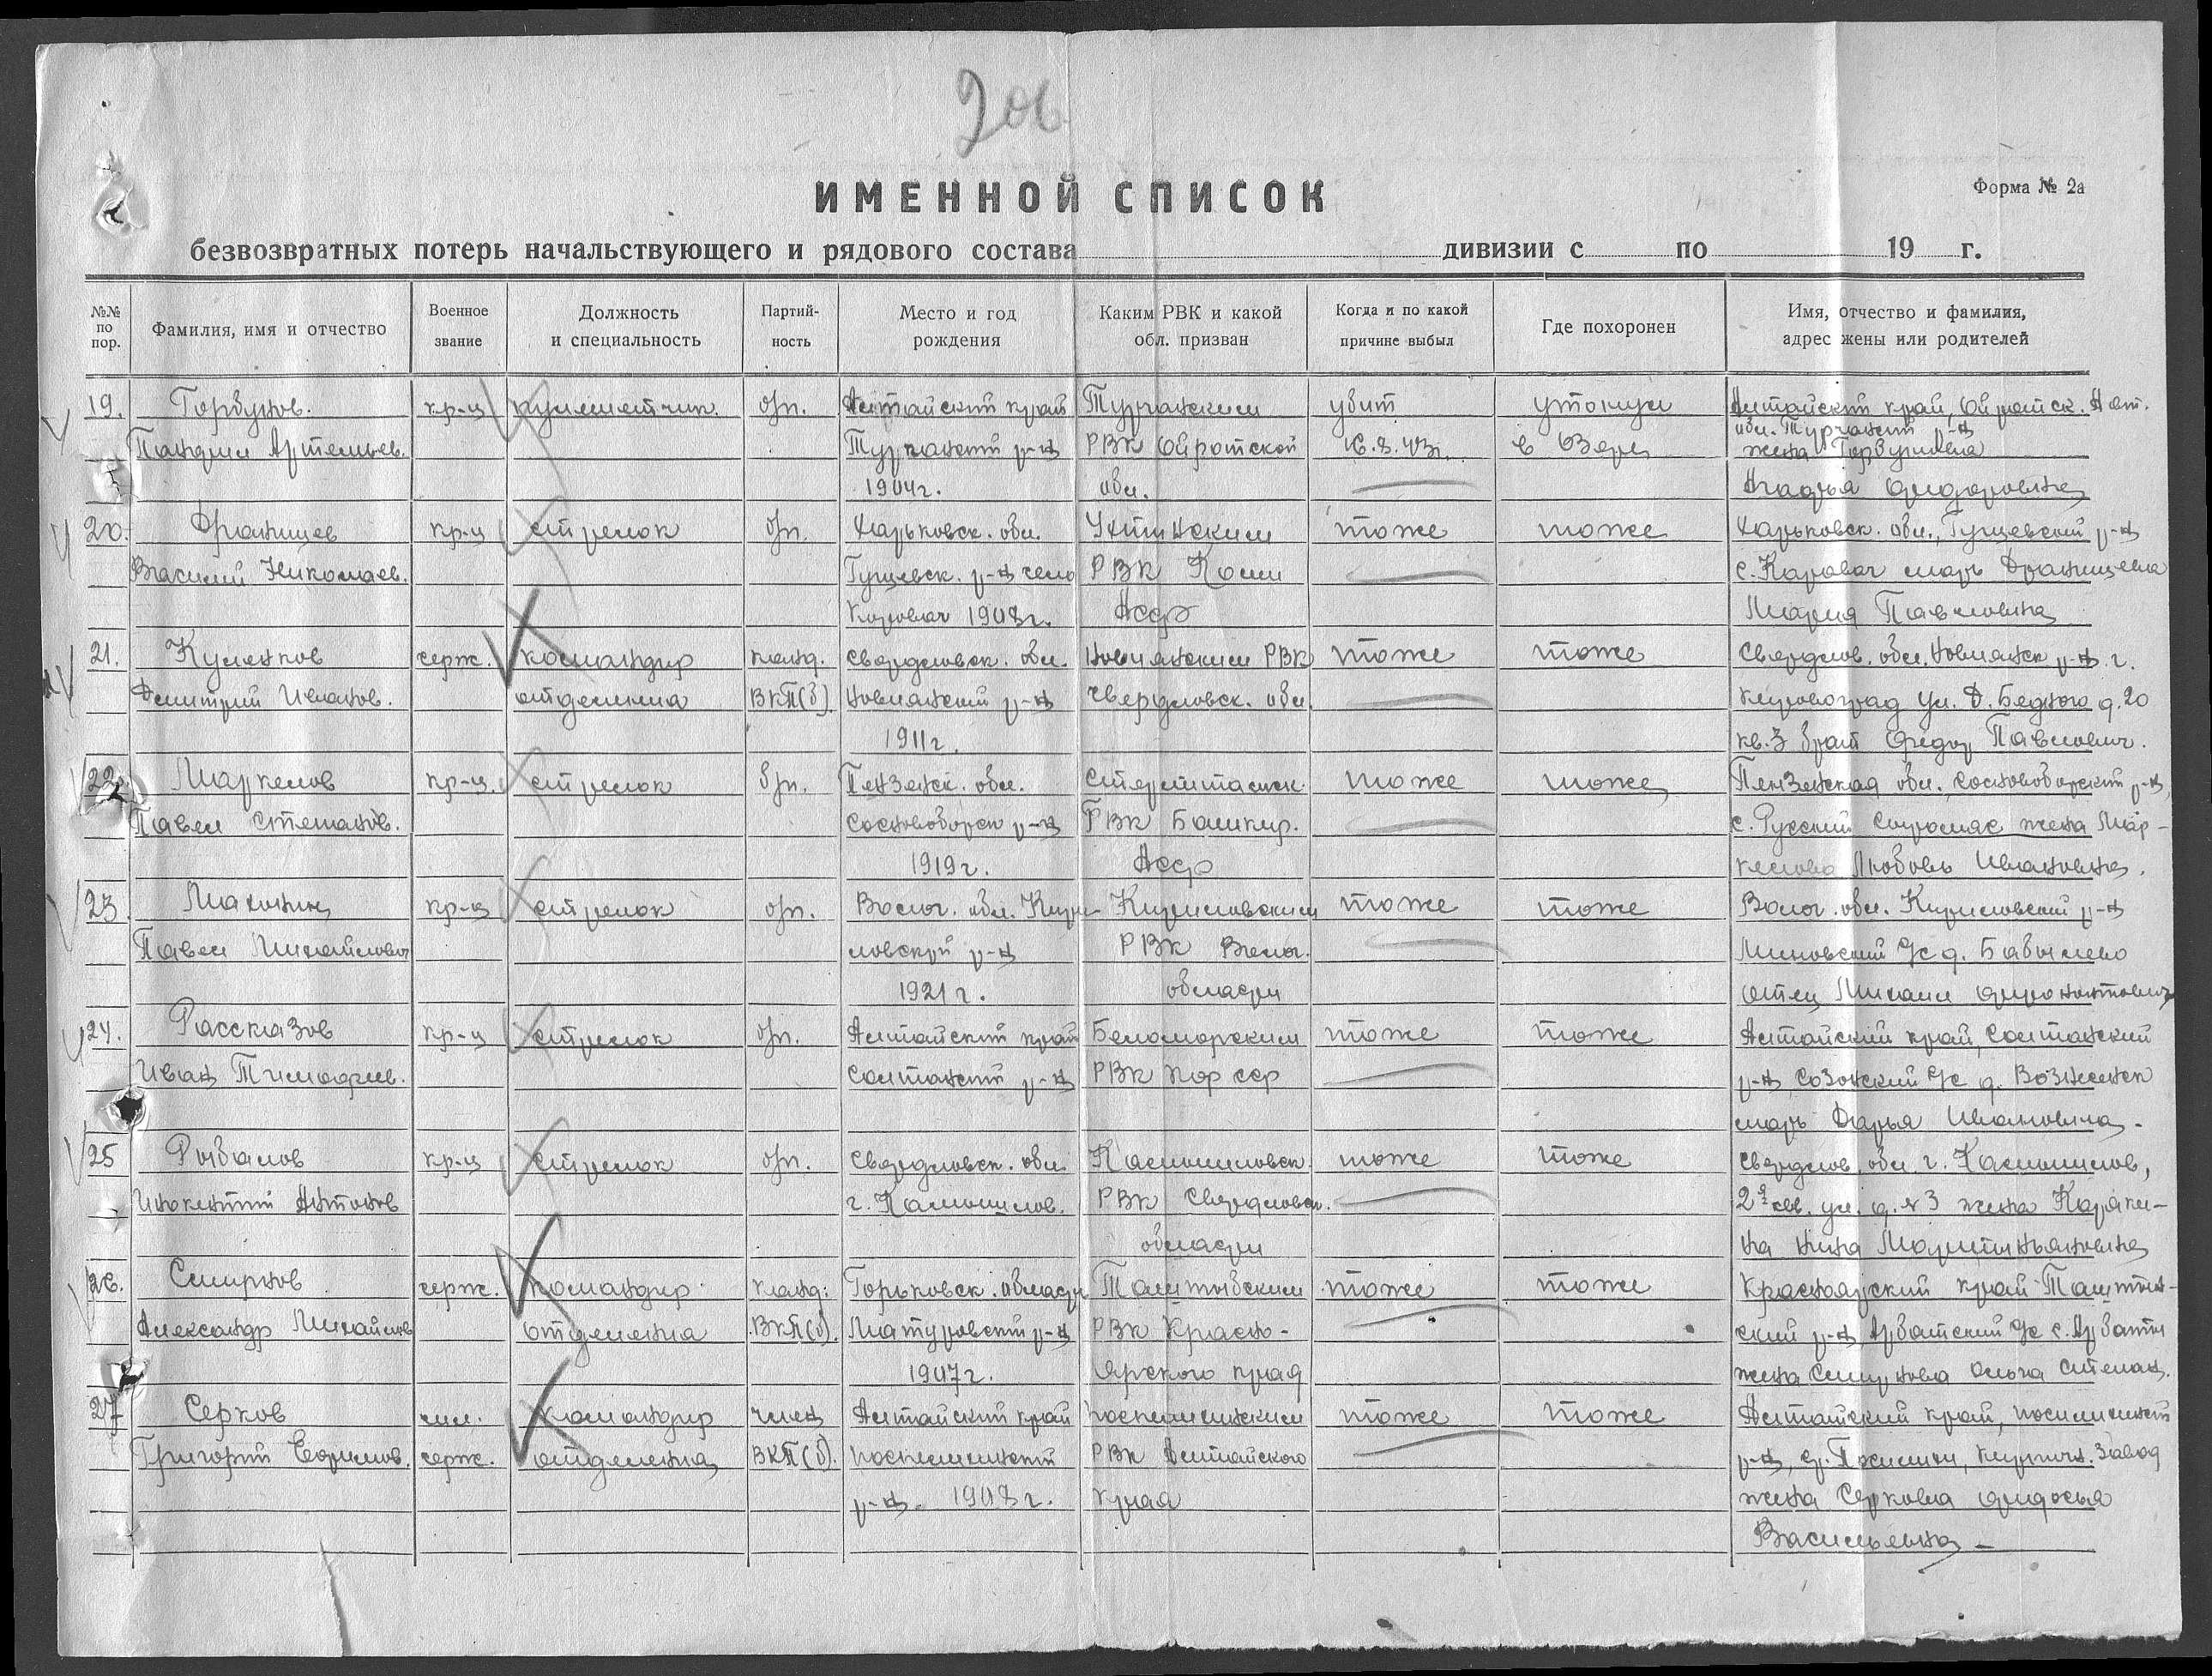 2об
ИМЕННОЙ СПИСОК
Форма № 2а
безвозвратных потерь начальствующего и рядового состава дивизии с по 19 г.
№№ по пор. Фамилия, имя и отчество Военное звание Должность и специальность Партий-ность Место и год рождения Каким РВК и какой обл. призван Когда и по какой причине выбыл Где похоронен Имя, отчество и фамилия, адрес жены или родителей
19. Горбунов. кр-ц пулеметчик. б/п. Алтайский край Турачаким убит утонул Алтайский край, Ойротск. Авт.
обл. Турачакский р-н
Артемьев. Турачакский р-н РВК Ойротской 16.8.43г. в Озере жена Горбунова
1904г. обл. Агафья Федоровна
20. Дранищев кр-ц стрелок б/п. Харьковск. обл. Ухтинским тоже тоже Харьковск. обл., р-н
Василий Николаев. р-н село РВК Коми с. Каравач мать Дранищева
Каровач 1908г. Асср Мария Павловна
21. Куленков серж. командир канд. Свердловск. обл. Невьянским РВК тоже тоже Свердлов. обл. Невьянск р-н г.
Дмитрий Иванов. отделения ВКП(б). Невьянский р-н Свердловск. обл. Кировоград ул. Д. Бедного д. 20
1911г. кв. 3 брат Федор Павлович.
22. Маркелов кр-ц. стрелок б/п. Пензенск. обл. Стерлитамск. тоже тоже Пензенская обл., Сосновоборский р-н,
Павел Степанов. Сосновоборск р-н РВК Башкир. с. Русский жена Мар-
1919г. Асср келова Любовь Ивановна.
23. Макичин кр-ц стрелок б/п. Волог. обл. Кири- Кирилловским тоже тоже Волог. обл. Кирилловский р-н
Павел Михайлович ловский р-н РВК Волог. с/с д. Бабычево
1921г. области отец Михаил
24. Рассказов кр-ц стрелок б/п. Алтайский край Беломорским тоже тоже Алтайский край, Солтанский
Иван Тимофеев. Солтанский р-н РВК Кар сср р-н Созонский с/с д. Вознесенск
мать Дарья Ивановна.
25 Рыбалов кр-ц стрелок б/п. Свердловск. обл. Камышловск. тоже тоже Свердлов. обл. г. Камышлов,
Инокентий Антонов г. Камышлов. РВК Свердловск. ул. д. №3 жена Каряки-
области на Нина
26. Смирнов серж. командир канд. Горьковск. области Таштыбским тоже тоже Красноярский край Таштып-
Александр Михайлов отделения ВКП(б). р-н РВК Красно- ский р-н Арбатский с/с с. Арбаты
1907г. ярского края жена Смирнова Ольга Степан.
27 Серков мл. командир член Алтайский край Поспелихинским тоже тоже Алтайский край, Поспелихинский
Григорий Ефимов. серж. отделения ВКП(б). Поспелихинский РВК Алтайского р-н, Кирпичн. Завод
р-н. 1908г. края жена Серкова Федосья
Васильевна